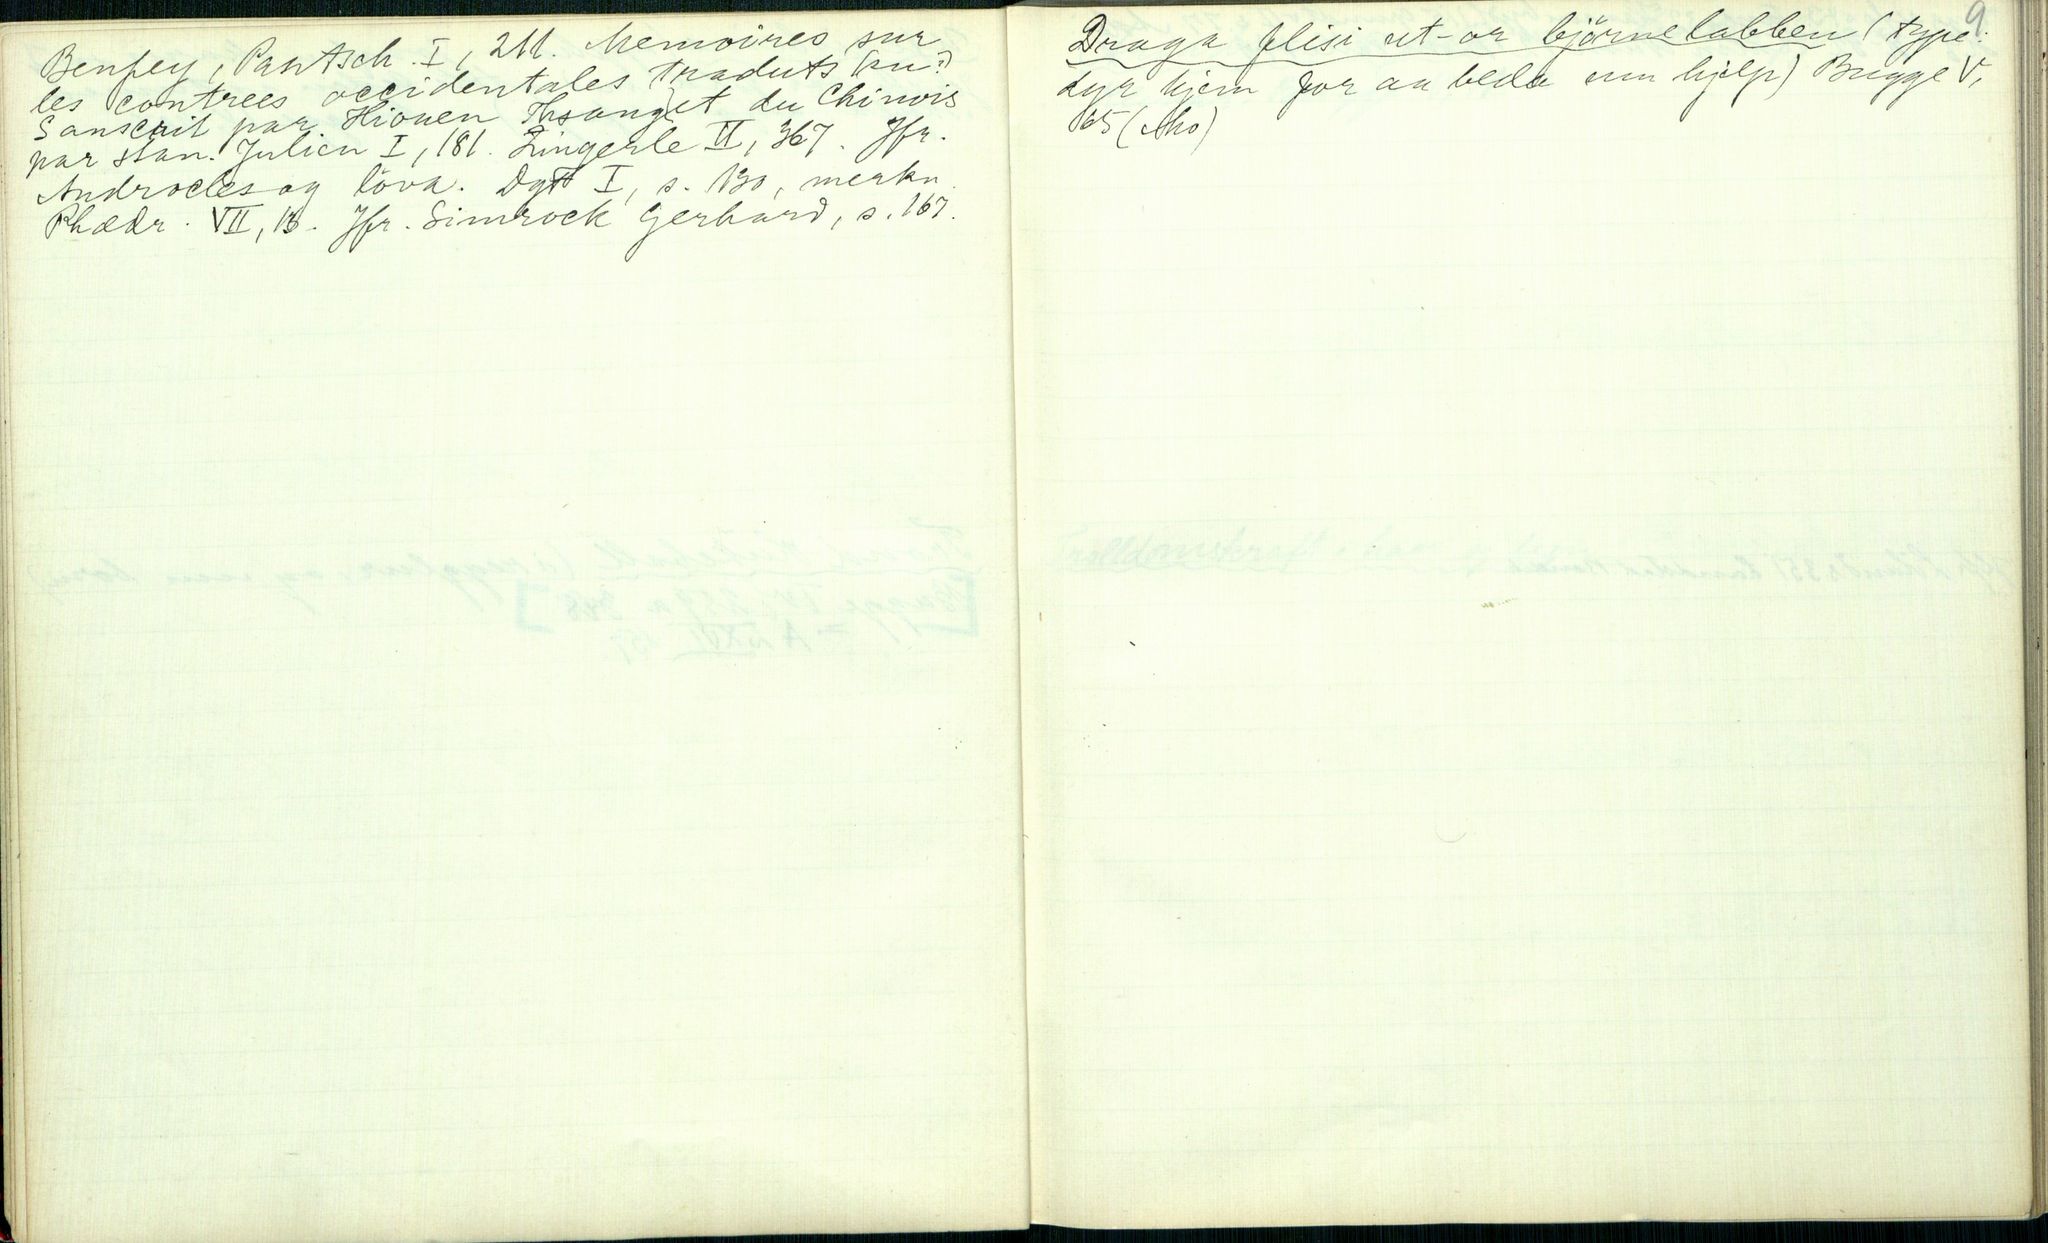 Benfey, Pantsch. I, 211. Memoires sur
les contrees occidentales traduts (du?)
Sanscrit par Hiouen Thsang et du Chinois
par Stan. Julien I, 181. Zingerle II, 367. Jfr.
Androcles og löva. Dgft I, s. 130, merkn.
Phædr. VII, 16. Jfr. Simrock Gerhard, s. 167.
9
Draga flisi ut-or björnelabben (type:
dyr kjem for aa beda um hjelp) Bugge V,
165 (Mo)